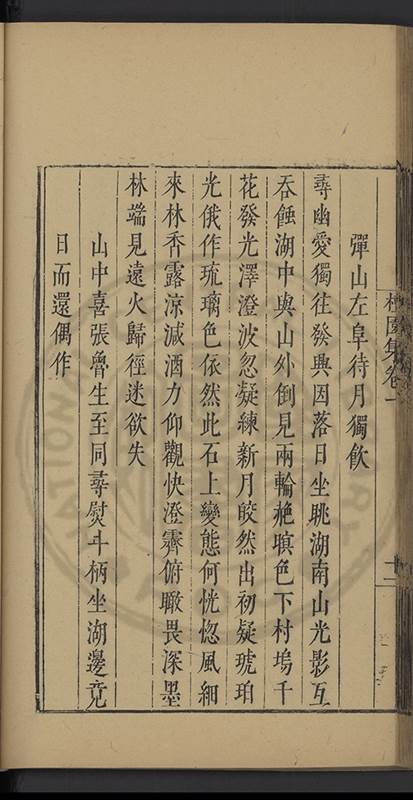 彈山左阜待月獨飲
尋幽愛獨往發興因落日坐眺湖南山光影互
吞蝕湖中與山外倒見兩輪赩暝色下村塢千
花發光澤澄波忽凝練新月皎然出初疑琥珀
光俄作琉璃色依然此石上變態何恍惚風細
來林香露涼減酒力仰觀快澄霽俯瞰畏深墨
林端見遠火歸徑迷欲失
山中喜張魯生至同尋熨斗柄坐湖邊竟
日而還偶作
園集卷一
十二